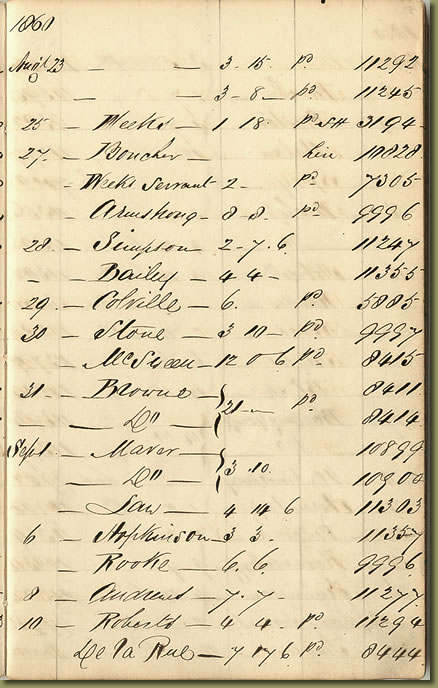 1861
Augt 23 — — 3 - 15 - pd. 11292
— — 3 - 8 — pd. 11245
25 — Weeks — 1 18 - pd SH 3194 -
27 - Boucher — 10828
- Weeks Servant - 2 - pd. 7305
- Armstrong - 8 - 8 - pd - 9996
28 - Simpson — 2 - 7 . 6 . 11247
- - Bailey — 4 4 - 11355
29 - Colville — 6 . pd 5885
30 - Stone — 3 10 - pd. 9997
- McSween — 12 0 6 pd. 8415
31 - Browne - 8411
21 — pd.
— — Do — 8414
Sept 1 — Maver — 10899
3 . 10 .
— Do — 10900
— Law — 4 14 6 11303
6 - Hopkinson - 3 3 . 11357
- Rooke — 6 . 6 . 9996
8 — Andrews — 7 . 7 - 11277
10 - Roberts — 4 4 . pd 11294
De la Rue — 7 17 6 pd. 8444